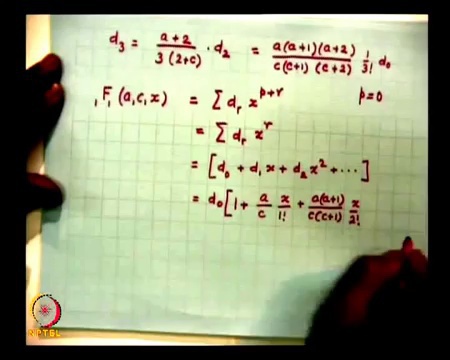 d₃ = (a+2)/(3(2+c)) · d₂ = (a(a+1)(a+2))/(c(c+1)(c+2)) 1/3! d₀
₁F₁(a,c,x) = Σ dᵣ x^(p+r) p=0
= Σ dᵣ x^r
= [d₀ + d₁x + d₂x² + ···]
= d₀[1 + a/c x/1! + (a(a+1))/(c(c+1)) x/2!
NPTEL